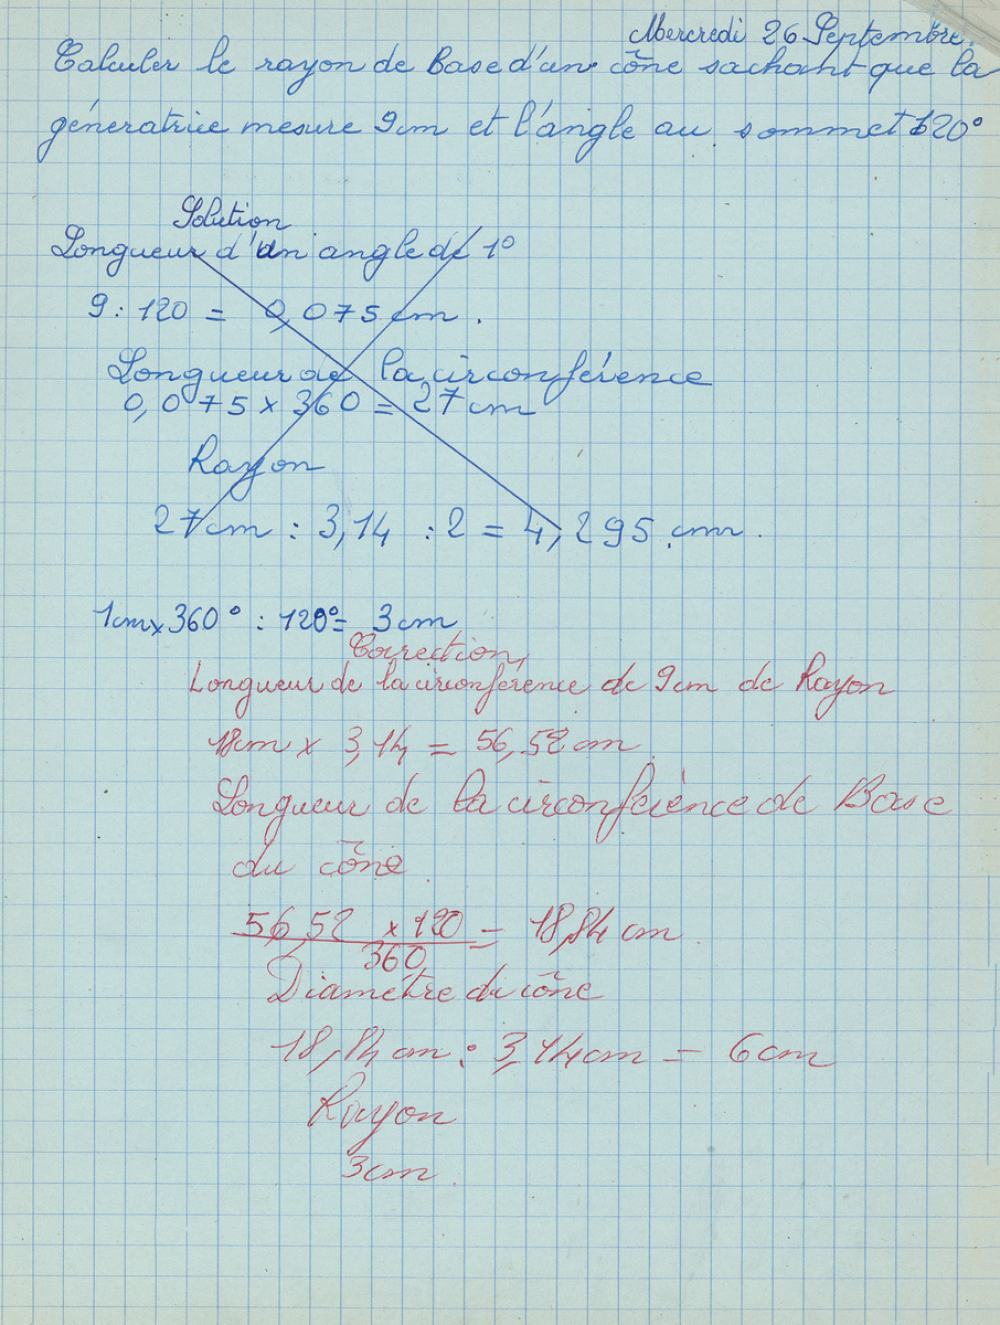 Mercredi 26 Septembre.
Calculer le rayon de Base d'un cône sachant que la
génératrice mesure 9cm et l'angle au sommet 120°
Solution
Longueur d'un angle de 1°
9 : 120 = 0,075 cm .
Longueur de la circonférence
0,075 x 360 = 27 cm
Rayon
27 cm : 3,14 : 2 = 4,295 cm .
1cm x 360° : 120° = 3 cm
Correction
Longueur de la circonférence de 9cm de Rayon
18cm x 3,14 = 56,52 cm
Longueur de la circonférence de Base
du cône
56,52 x 120 = 18,84 cm .
360
Diamètre du cône
18,84 cm : 3,14 cm = 6 cm
Rayon
3cm .